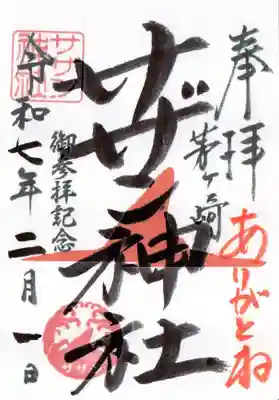 奉拝
茅ヶ崎
ありがとね
サザン神社
御参拝記念
令和七年二月一日
サザン
神社